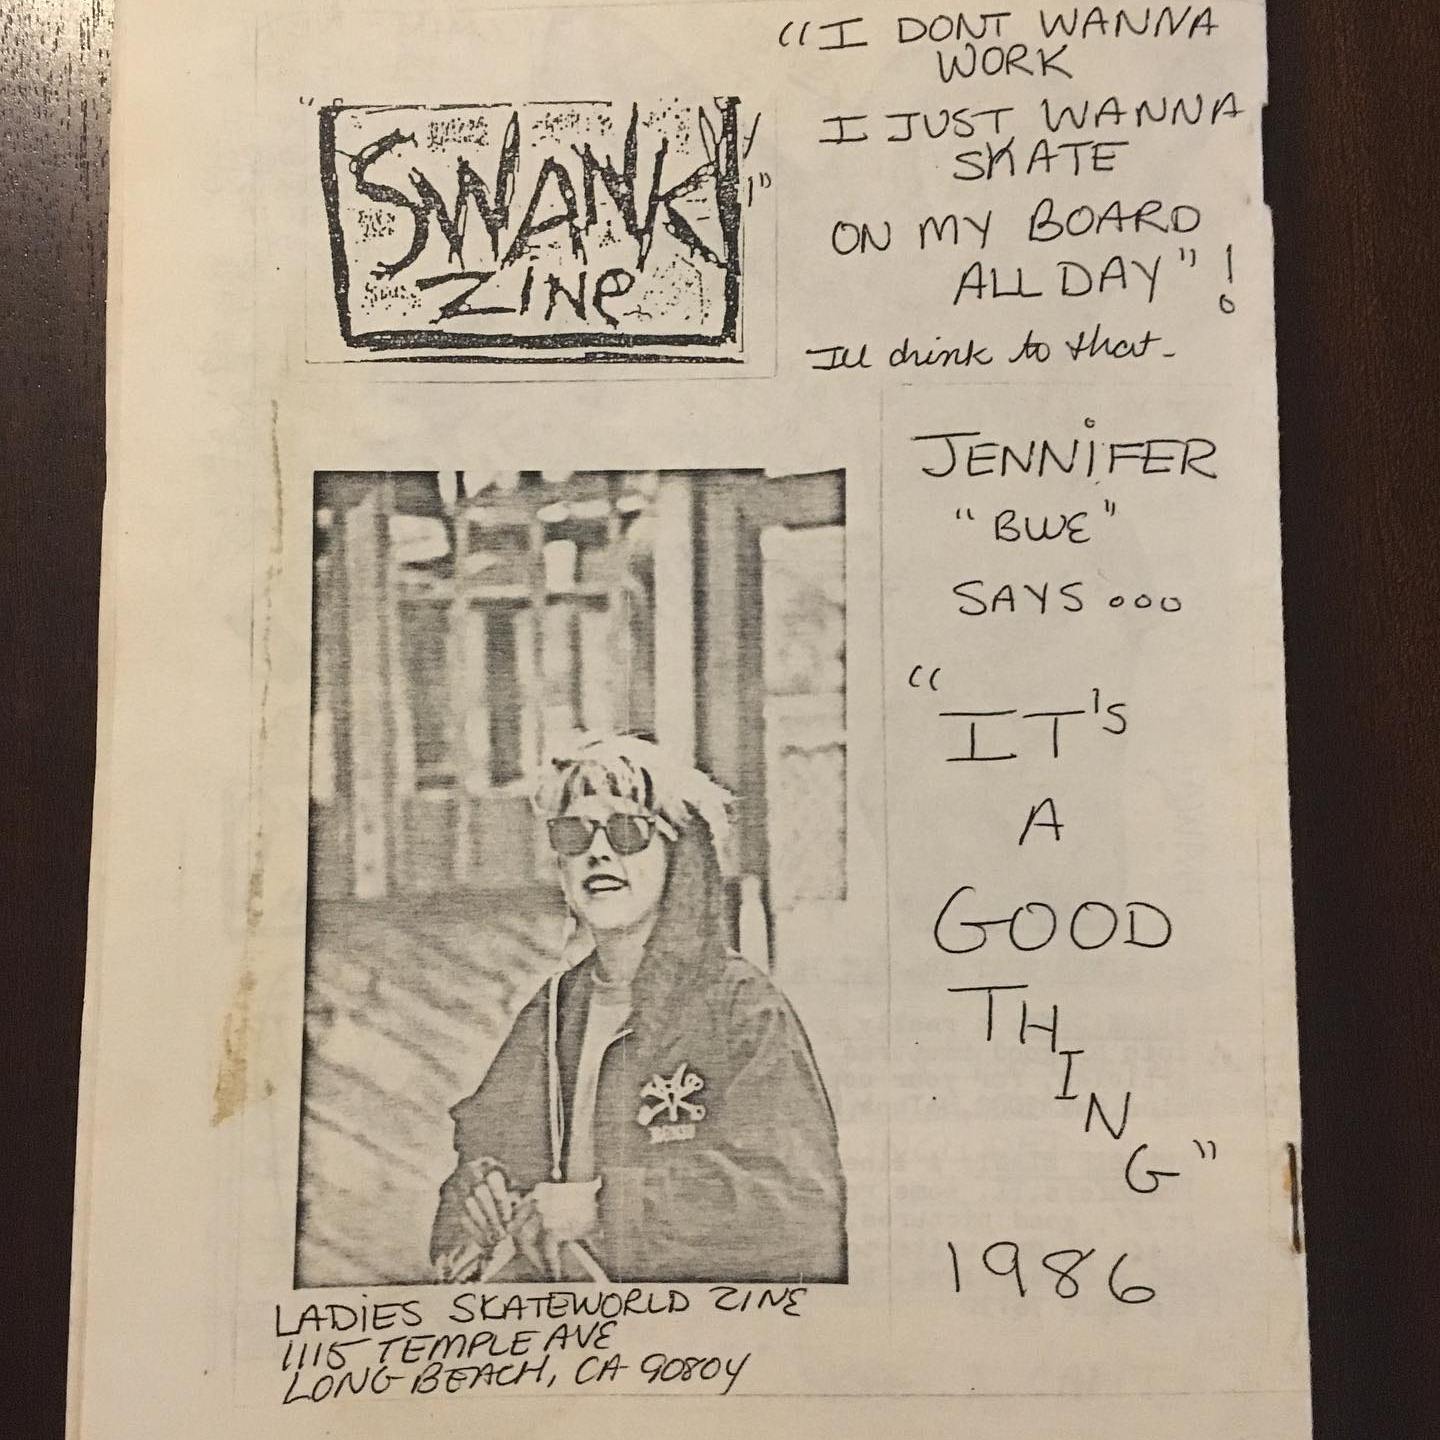 "I DONT WANNA
WORK
I JUST WANNA
SKATE
ON MY BOARD
ALL DAY"!
Ill drink to that-
"SWANKY!"
zine
JENNiFER
"BWE"
SAYS ooo
"IT's
A
GOOD
THING"
1986
LADiES SKATEWORLD ZINE
1115 TEMPLE AVE
LONG BEACH, CA 90804